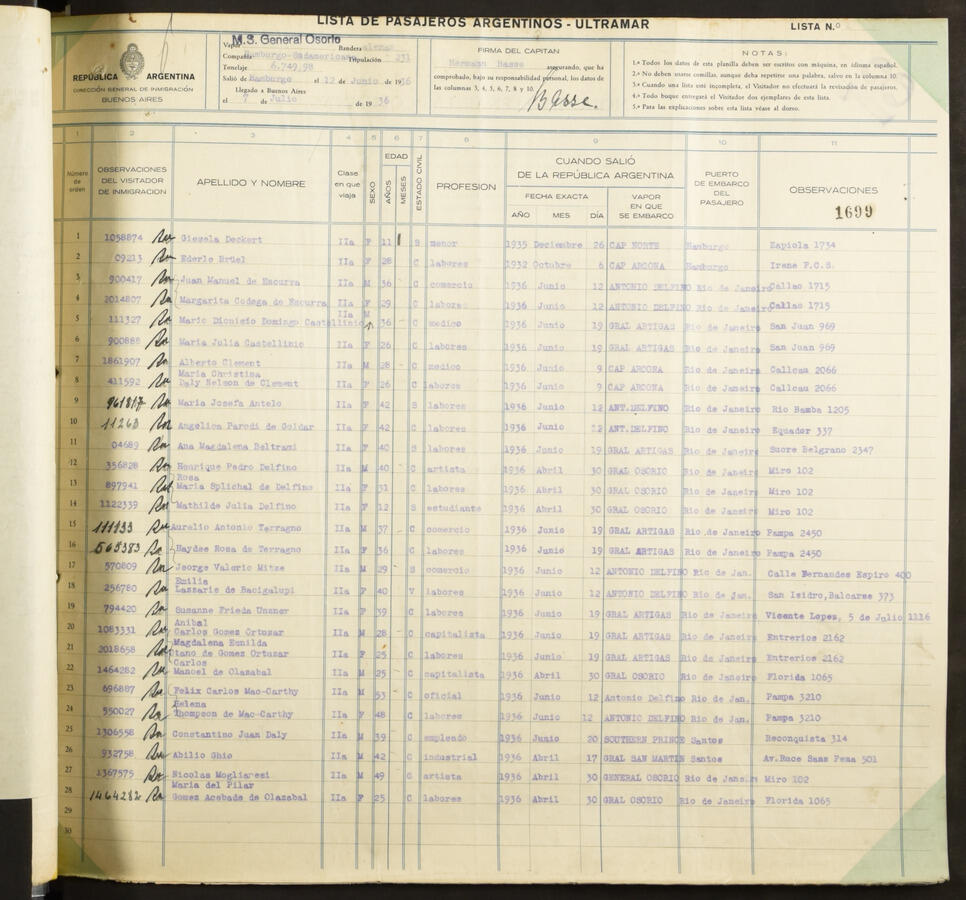 LISTA DE PASAJEROS ARGENTINOS - ULTRAMAR
LISTA N.º
REPÚBLICA ARGENTINA
DIRECCIÓN GENERAL DE INMIGRACIÓN
BUENOS AIRES
M.S. General Osorio
Vapor Bandera alemana
Compañía Hamburgo-Sudamericana Tripulación 231
Tonelaje 6.749,98
Salió de Hamburgo el 12 de Junio de 1936
Llegado a Buenos Aires
el 7 de Julio de 1936
FIRMA DEL CAPITAN
Hermann Basse asegurando, que ha
comprobado, bajo su responsabilidad personal, los datos de
las columnas 3, 4, 5, 6, 7, 8 y 10.
Basse.
NOTAS:
1.ª Todos los datos de esta planilla deben ser escritos con máquina, en idioma español.
2.ª No deben usarse comillas, aunque deba repetirse una palabra, salvo en la columna 10.
3.ª Cuando una lista esté incompleta, el Visitador no efectuará la revisación de pasajeros.
4.ª Todo buque entregará el Visitador dos ejemplares de esta lista.
5.ª Para las explicaciones sobre esta lista véase al dorso.
1 2 3 4 5 6 7 8 9 10 11
Número de orden
OBSERVACIONES DEL VISITADOR DE INMIGRACION
APELLIDO Y NOMBRE
Clase en que viaja
SEXO
EDAD
AÑOS
MESES
ESTADO CIVIL
PROFESION
CUANDO SALIÓ DE LA REPÚBLICA ARGENTINA
FECHA EXACTA
AÑO MES DÍA
VAPOR EN QUE SE EMBARCO
PUERTO DE EMBARCO DEL PASAJERO
OBSERVACIONES
1699
1 1058874 Giesela Deckert IIa F 11 S menor 1935 Deciembre 26 CAP NORTE Hamburgo Zapiola 1734
2 09213 Ederle Brüel IIa F 28 C labores 1932 Octubre 6 CAP ARCONA Hamburgo Irene F.C.S.
3 900417 Juan Manuel de Escurra IIa M 36 C comercio 1936 Junio 12 ANTONIO DELFINO Rio de Janeiro Callao 1715
4 2014807 Margarita Codega de Escurra IIa F 29 C labores 1936 Junio 12 ANTONIO DELFINO Rio de Janeiro Callao 1715
5 111327 Mario Dionisio Domingo Castellinio IIa M 36 - C medico 1936 Junio 19 GRAL ARTIGAS Rio de Janeiro San Juan 969
6 900888 Maria Julia Castellinio IIa F 26 C labores 1936 Junio 19 GRAL ARTIGAS Rio de Janeiro San Juan 969
7 1861907 Alberto Clement IIa M 28 - C medico 1936 Junio 9 CAP ARCONA Rio de Janeiro Callcau 2066
Maria Christina
8 411592 Daly Nelson de Clement IIa F 26 C labores 1936 Junio 9 CAP ARCONA Rio de Janeiro Callcau 2066
9 961817 Maria Josefa Antelo IIa F 42 S labores 1936 Junio 12 ANT.DELFINO Rio de Janeiro Rio Bamba 1205
10 11263 Angelica Parodi de Goldar IIa F 42 C labores 1936 Junio 12 ANT.DELFINO Rio de Janeiro Equador 337
11 04689 Ana Magdalena Beltrami IIa F 40 S labores 1936 Junio 19 GRAL ARTIGAS Rio de Janeiro Sucre Belgrano 2347
12 356828 Henrique Pedro Delfino IIa M 40 C artista 1936 Abril 30 GRAL OSORIO Rio de Janeiro Miro 102
Rosa
13 897941 Maria Splichal de Delfino IIa F 31 C labores 1936 Abril 30 GRAL OSORIO Rio de Janeiro Miro 102
14 1122339 Mathilde Julia Delfino IIa F 12 S estudiante 1936 Abril 30 GRAL OSORIO Rio de Janeiro Miro 102
15 111133 Aurelio Antonio Terragno IIa M 37 - C comercio 1936 Junio 19 GRAL ARTIGAS Rio de Janeiro Pampa 2450
16 565383 Haydee Rosa de Terragno IIa F 36 C labores 1936 Junio 19 GRAL ARTIGAS Rio de Janeiro Pampa 2450
17 570809 Jeorge Valerio Mitze IIa M 29 - S comercio 1936 Junio 12 ANTONIO DELFINO Rio de Jan. Calle Fernandes Espiro 400
Emilia
18 256780 Lazzarie de Bacigalupi IIa F 40 V labores 1936 Junio 12 ANTONIO DELFINO Rio de Jan. San Isidro,Balcarse 373
19 794420 Susanne Frieda Unzner IIa F 39 C labores 1936 Junio 19 GRAL ARTIGAS Rio de Janeiro Vicente Lopez, 5 de Julio 1116
Anibal
20 1083331 Carlos Gomez Ortuzar IIa M 28 - C capitalista 1936 Junio 19 GRAL ARTIGAS Rio de Janeiro Entrerios 2162
Magdalena Esnilda
21 2018658 Otano de Gomez Ortuzar IIa F 25 C labores 1936 Junio 19 GRAL ARTIGAS Rio de Janeiro Entrerios 2162
Carlos
22 1464282 Manoel de Olazabal IIa M 25 C capitalista 1936 Abril 30 GRAL OSORIO Rio de Janeiro Florida 1065
23 696887 Felix Carlos Mac-Carthy IIa M 53 - C oficial 1936 Junio 12 Antonio Delfino Rio de Jan. Pampa 3210
Helena
24 550027 Thompson de Mac-Carthy IIa F 48 C labores 1936 Junio 12 ANTONIO DELFINO Rio de Jan. Pampa 3210
25 1306558 Constantino Juan Daly IIa M 39 - C empleado 1936 Junio 20 SOUTHERN PRINCE Santos Reconquista 314
26 932758 Abilio Ghio IIa M 42 C industrial 1936 Abril 17 GRAL SAN MARTIN Santos Av.Ruce Sans Pena 501
27 1367575 Nicolas Mogliaresi IIa M 49 C artista 1936 Abril 30 GENERAL OSORIO Rio de Janeiro Miro 102
Maria del Pilar
28 1464282 Gomez Acebade de Olazabal IIa F 25 C labores 1936 Abril 30 GRAL OSORIO Rio de Janeiro Florida 1065
29
30